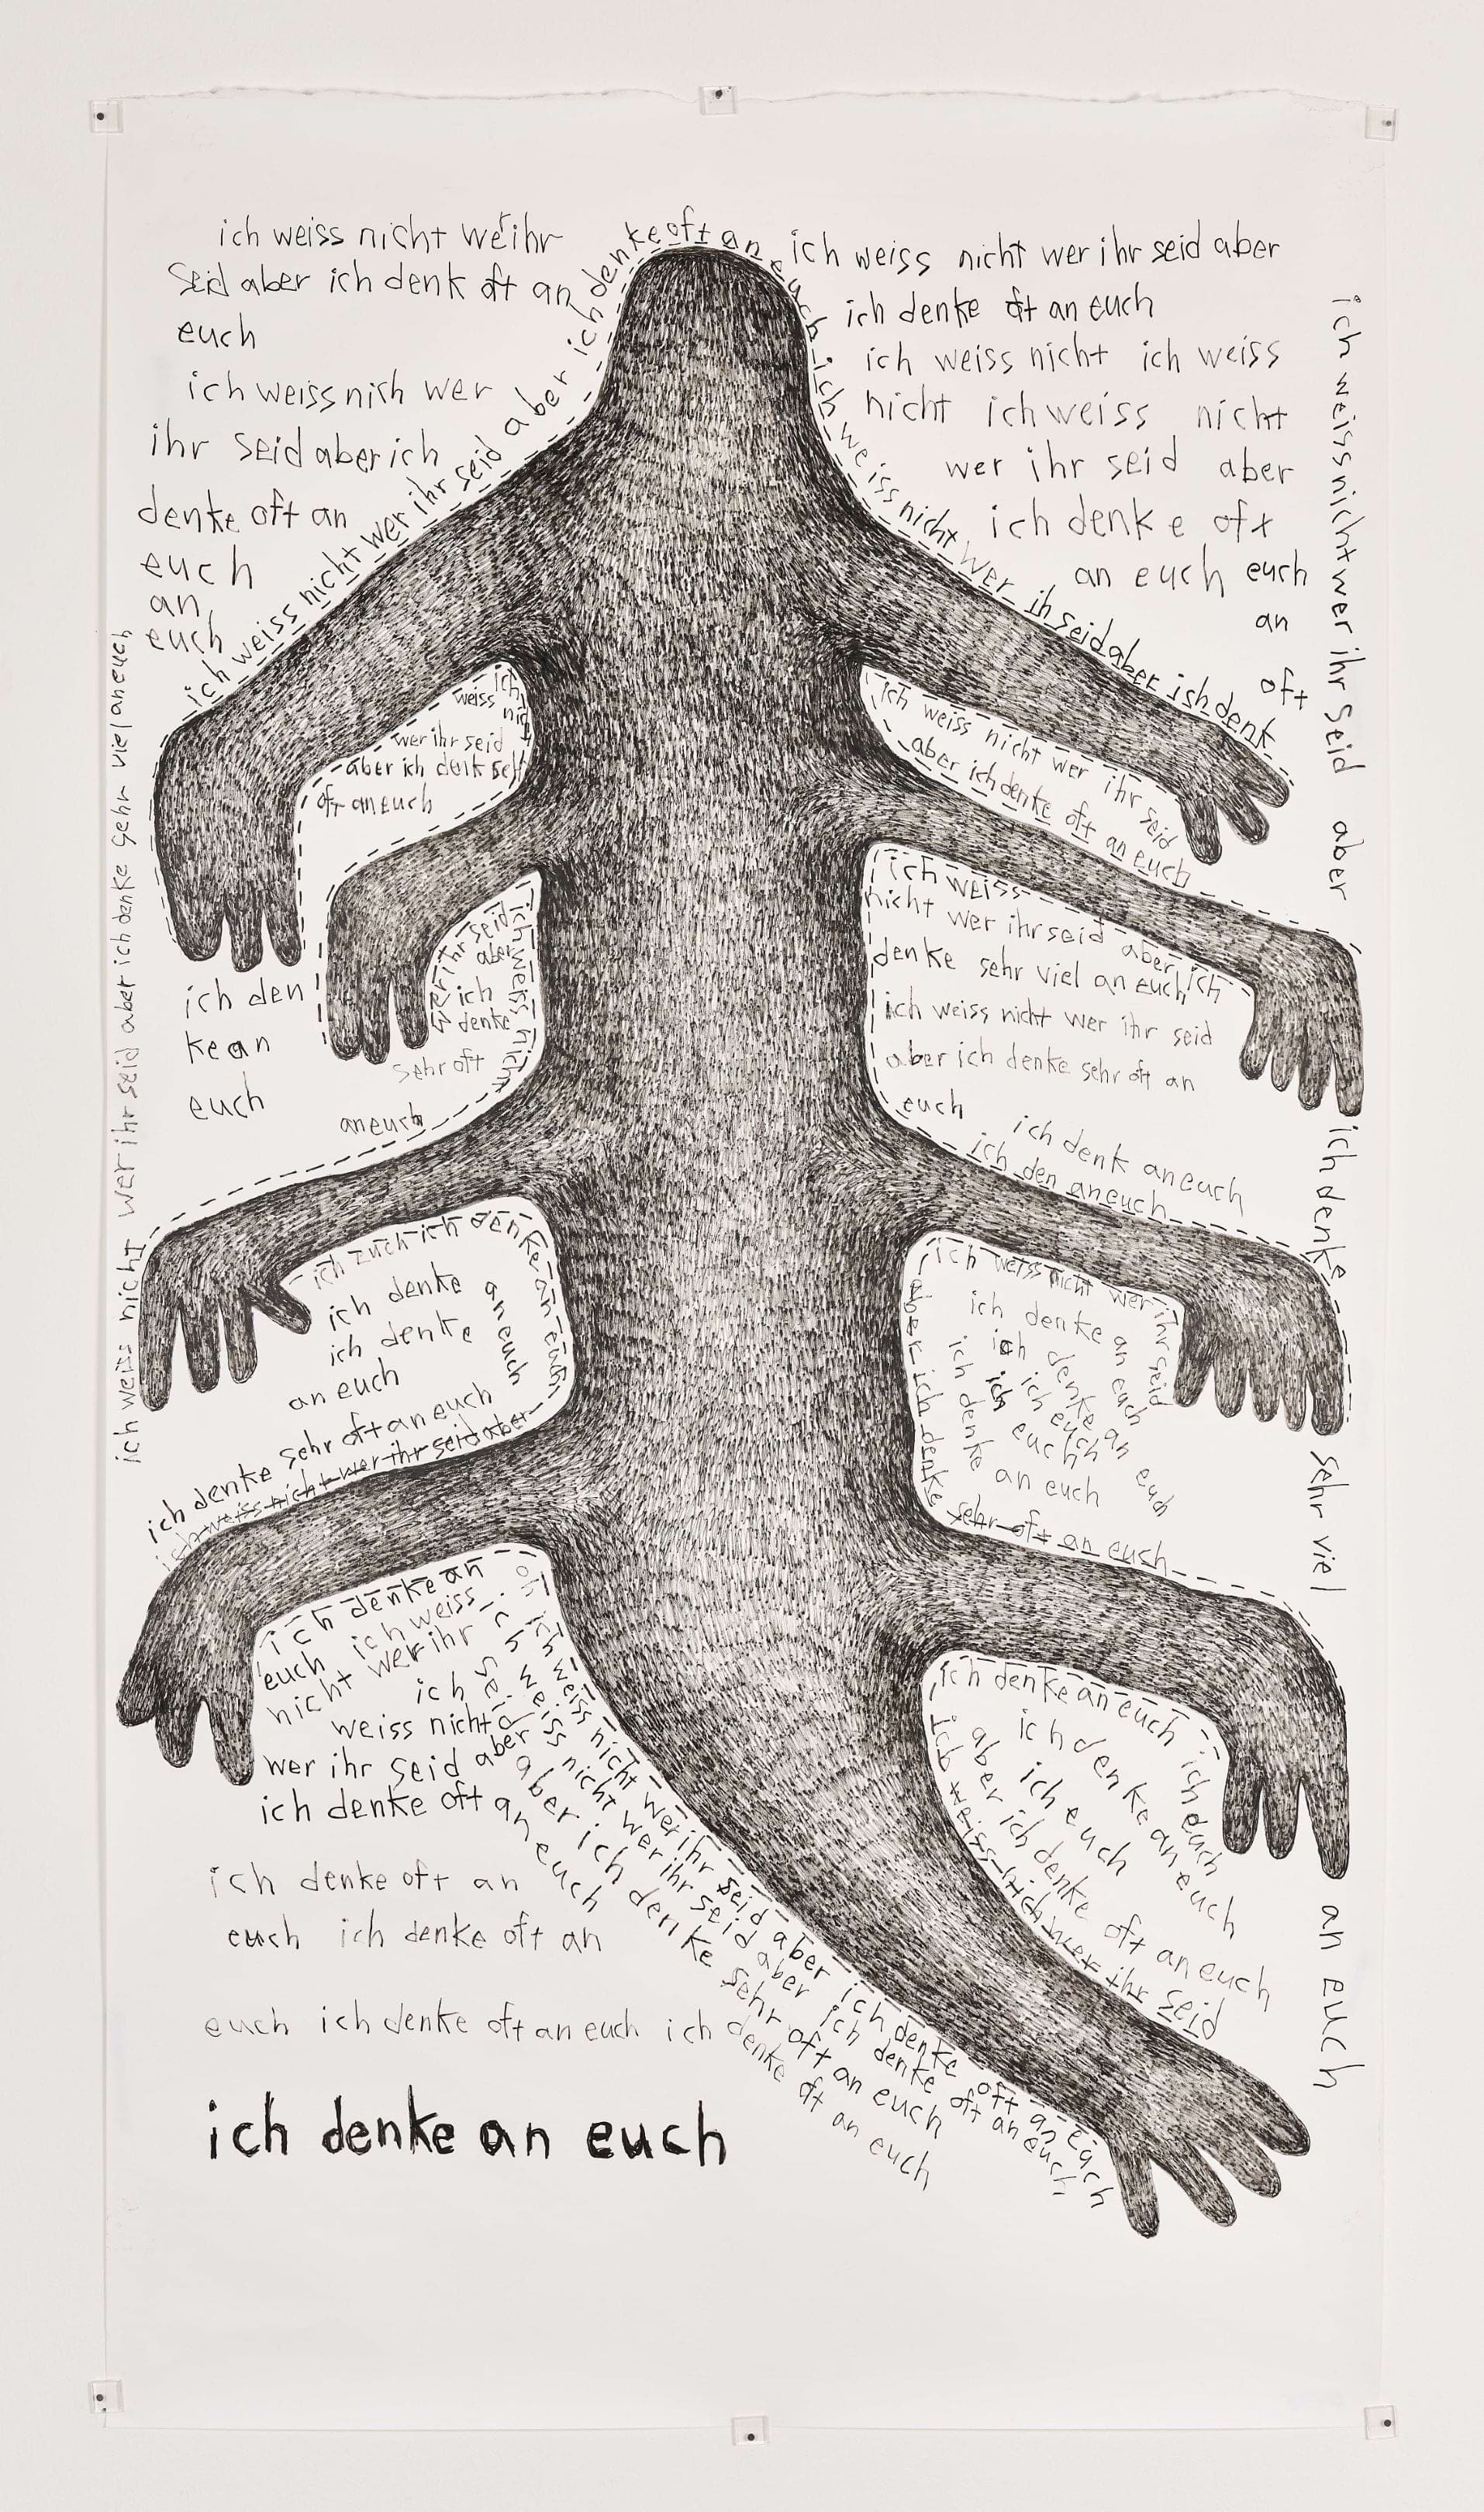 ich weiss nicht we ihr
seid aber ich denk oft an
euch
ich weiss nich wer
ihr seid aber ich
denke oft an
euch
an
euch
ich weiss nicht wer ihr seid aber ich denke oft an euch ich weiss nicht wer ih seid aber ich denk
ich weiss nicht wer ihr seid aber
ich denke oft an euch
ich weiss nicht ich weiss
nicht ich weiss nicht
wer ihr seid aber
ich denke oft
an euch euch
an
oft
ich weiss nicht wer ihr seid aber ich denke sehr viel an euch
ich weiss nicht wer ihr seid aber ich denke sehr viel an euch
ich
weiss
wer ihr seid
aber ich
oft an euch
ich weiss nicht wer ihr seid
aber ich denke oft an euch
wer ihr seid
aber
ich
denke
sehr oft
an euch
ich den
ke an
euch
ich weiss
nicht wer ihr seid aber ich
denke sehr viel an euch
ich weiss nicht wer ihr seid
aber ich denke sehr oft an
euch
ich denk an euch
ich den an euch
ich denke an euch
ich denke
an euch
ich denke
an euch
ich denke sehr oft an euch
ich weiss nicht wer ihr seid aber
ich weiss nicht wer ihr seid
aber ich denke sehr oft an euch
ich denke an euch
ich denke an euch
ich euch
ich euch
ich denke an euch
ich denke an
euch ich weiss
nicht wer ihr
ich
weiss nicht
wer ihr seid aber
ich denke oft an euch
ich weiss nicht wer ihr seid aber ich denke oft an euch
ich weiss nicht wer ihr seid aber ich denke oft an euch
seid aber ich denke sehr oft an euch
ich denke an euch ich euch
ich denke an euch
ich euch
aber ich denke oft an euch
ich weiss nich wer ihr seid
ich denke oft an
euch ich denke oft an
euch ich denke oft an euch ich denke oft an euch
ich denke an euch